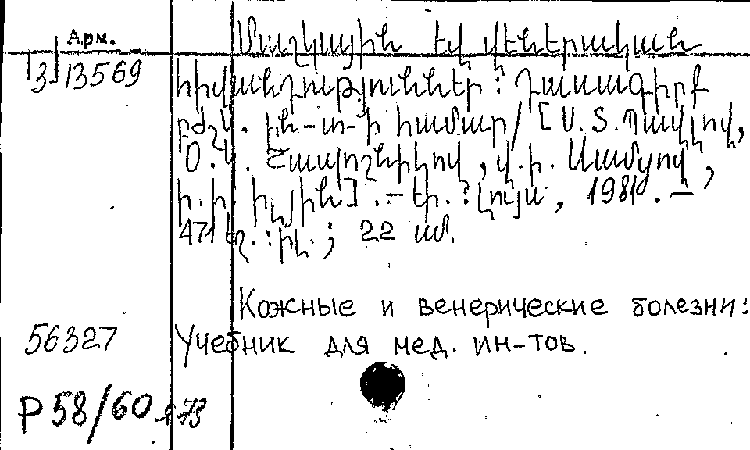 Арм.
Մաշկային եվ վեներական
3 13569 հիվանդություններ: Դասագիրք
բժշկ. ին-տ-ի համար/ [Ս.Տ.Պավլով,
Օ.Կ. Շապոշնիկով, Վ.ի. Սամցով,
ի.ի. իլյին]. — եր.: Լույս, 1981. —
471 էջ.: իլ.; 22 սմ.
Кожные и венерические болезни:
56327 Учебник для мед. ин-тов.
Р 58/60